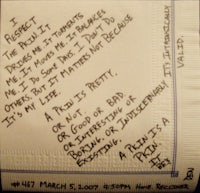 I RESPECT
THE PAIN. IT
DRIVES ME. IT TORMENTS
ME. IT MOVES ME. IT BALANCES
ME. I DO SOME DAYS I DON'T DO
OTHERS. BUT IT MATTERS NOT BECAUSE
IT'S MY LIFE.
A PAIN IS PRETTY.
OR NOT.
OR GOOD OR BAD.
OR INTERESTING OR
BORING. OR INDISCERNABLE
EXISTING.
A PAIN IS A
PAIN.
IT'S INTRINSICALLY
VALID.
#417 MARCH 5, 2007 4:50PM HOME. RECLINER